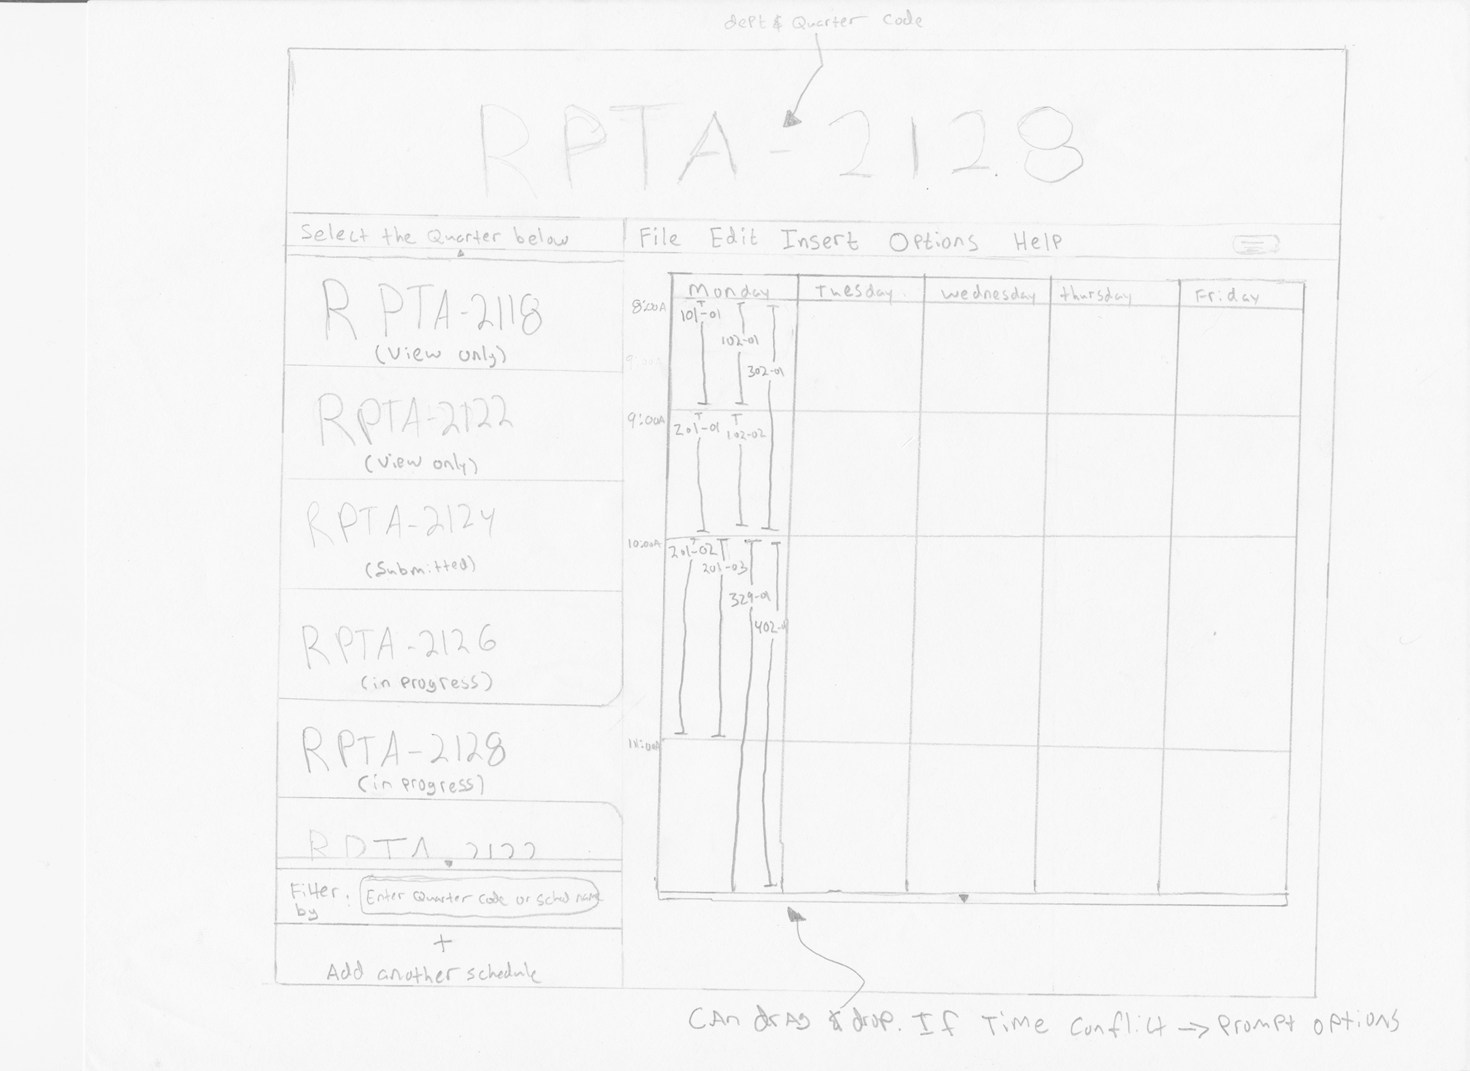 dept & Quarter Code
RPTA-2128
Select the Quarter below
File Edit Insert Options Help
RPTA-2118
(View only)
RPTA-2122
(View only)
RPTA-2124
(Submitted)
RPTA-2126
(in progress)
RPTA-2128
(in progress)
RPTA-2122
Filter by:
Enter Quarter code or sched name
+
Add another schedule
Monday Tuesday Wednesday thursday Friday
8:00A
101-01
102-01
302-01
9:00
9:00A
201-01 102-02
10:00A
201-02
201-03
329-01
402-01
11:00A
CAn drAg & drop. If Time Conflict → Prompt options